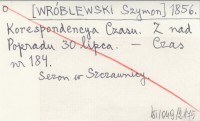 D [WRÓBLEWSKI Szymon] 1856.
Korespondencya Czasu. Z nad
Popradu 30 lipca. — Czas
nr 184.
Sezon w Szczawnicy